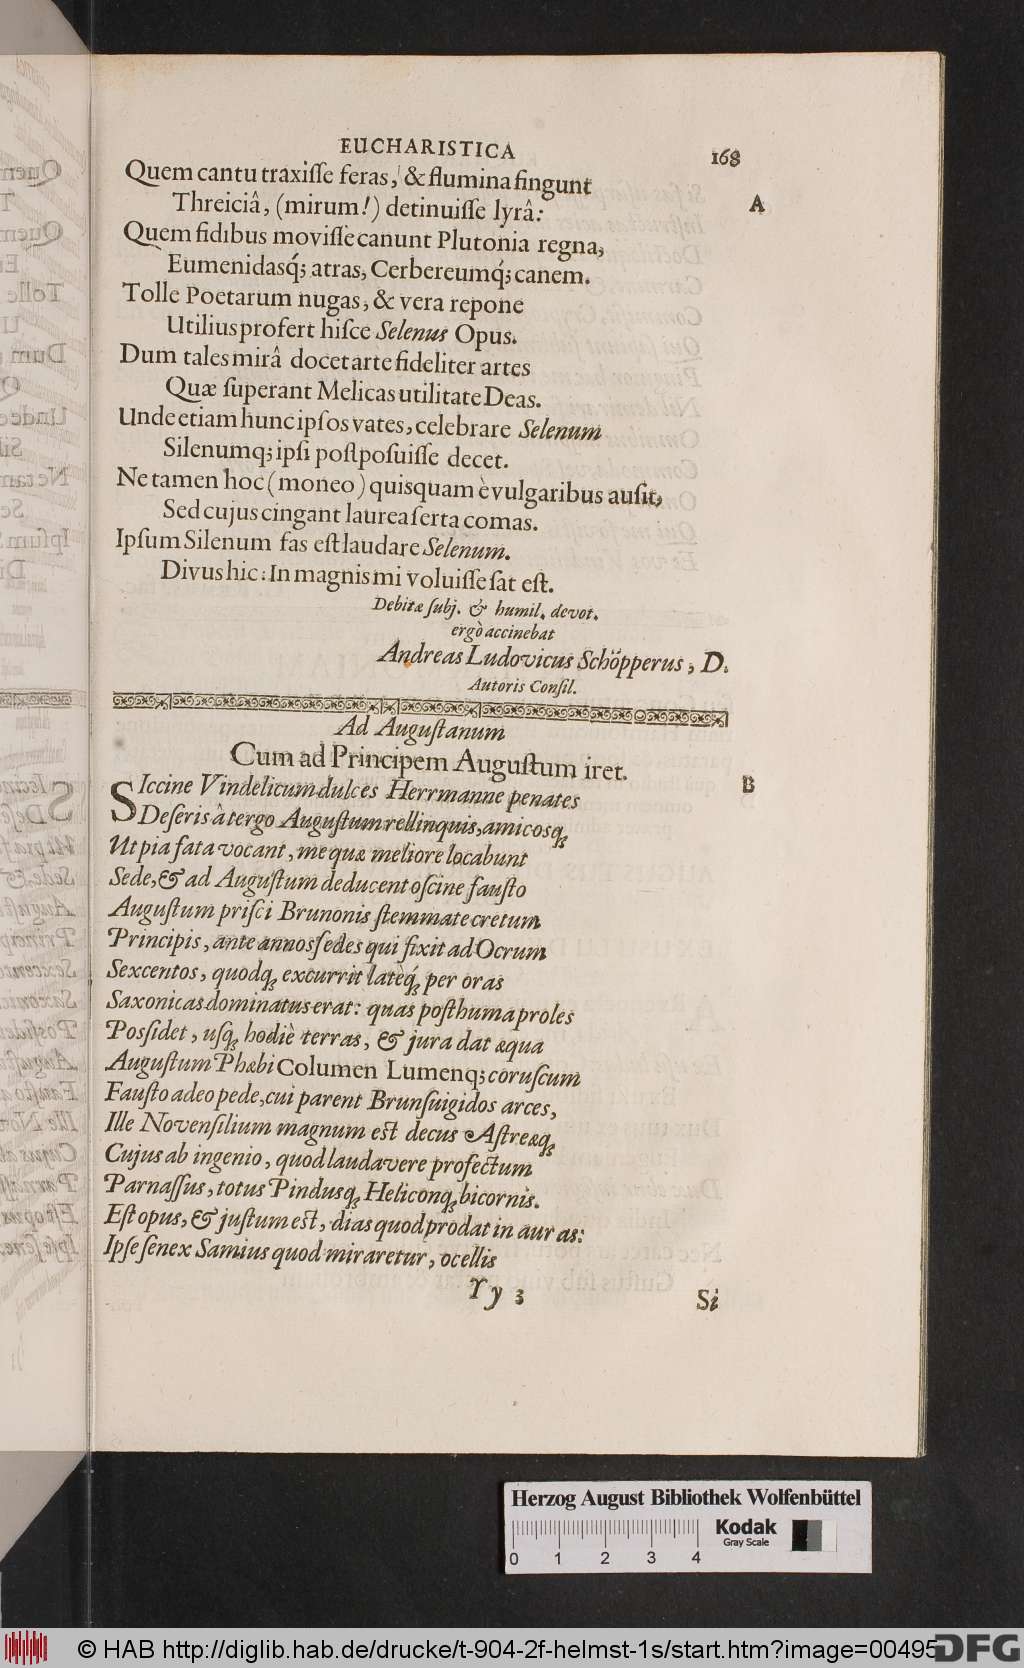 EUCHARISTICA
168
Quem cantu traxiſſe feras, & flumina fingunt
A
Threiciâ, (mirum!) detinuiſſe lyrâ:
Quem fidibus moviſſe canunt Plutonia regna,
Eumenidasq́; atras, Cerbereumq́; canem.
Tolle Poetarum nugas, & vera repone
Utilius profert hiſce Selenus Opus.
Dum tales mirâ docet arte fideliter artes
Quæ ſuperant Melicas utilitate Deas.
Unde etiam hunc ipſos vates, celebrare Selenum
Silenumq; ipſi poſtpoſuiſſe decet.
Ne tamen hoc (moneo) quisquam è vulgaribus auſit,
Sed cujus cingant laurea ſerta comas.
Ipſum Silenum fas eſt laudare Selenum.
Divus hic: In magnis mi voluiſſe ſat eſt.
Debitæ ſubj. & humil. devot.
ergò accinebat
Andreas Ludovicus Schöpperus, D.
Autoris Conſil.
Ad Auguſtanum
Cum ad Principem Auguſtum iret.
B
SIccine Vindelicum dulces Herrmanne penates
Deſeris à tergo Auguſtum rellinquis, amicosq;
Ut pia fata vocant, me quæ meliore locabunt
Sede, & ad Auguſtum deducent oſcine fauſto
Auguſtum priſci Brunonis ſtemmate cretum
Principis, ante annos ſedes qui fixit ad Ocrum
Sexcentos, quodq; excurrit latèq́; per oras
Saxonicas dominatus erat: quas poſthuma proles
Poſſidet, uſq; hodiè terras, & jura dat æqua
Auguſtum Phæbi Columen Lumenq; coruſcum
Fauſto adeo pede, cui parent Brunſuigidos arces,
Ille Novenſilium magnum est decus Aſtreæq;
Cujus ab ingenio, quod laudavere profectum
Parnaſſus, totus Pindusq; Heliconq; bicornis.
Eſt opus, & juſtum est, dias quod prodat in auras:
Ipſe ſenex Samius quod miraretur, ocellis
Yy 3
Si
Herzog August Bibliothek Wolfenbüttel
Kodak
Gray Scale
0 1 2 3 4
© HAB http://diglib.hab.de/drucke/t-904-2f-helmst-1s/start.htm?image=00495
DFG